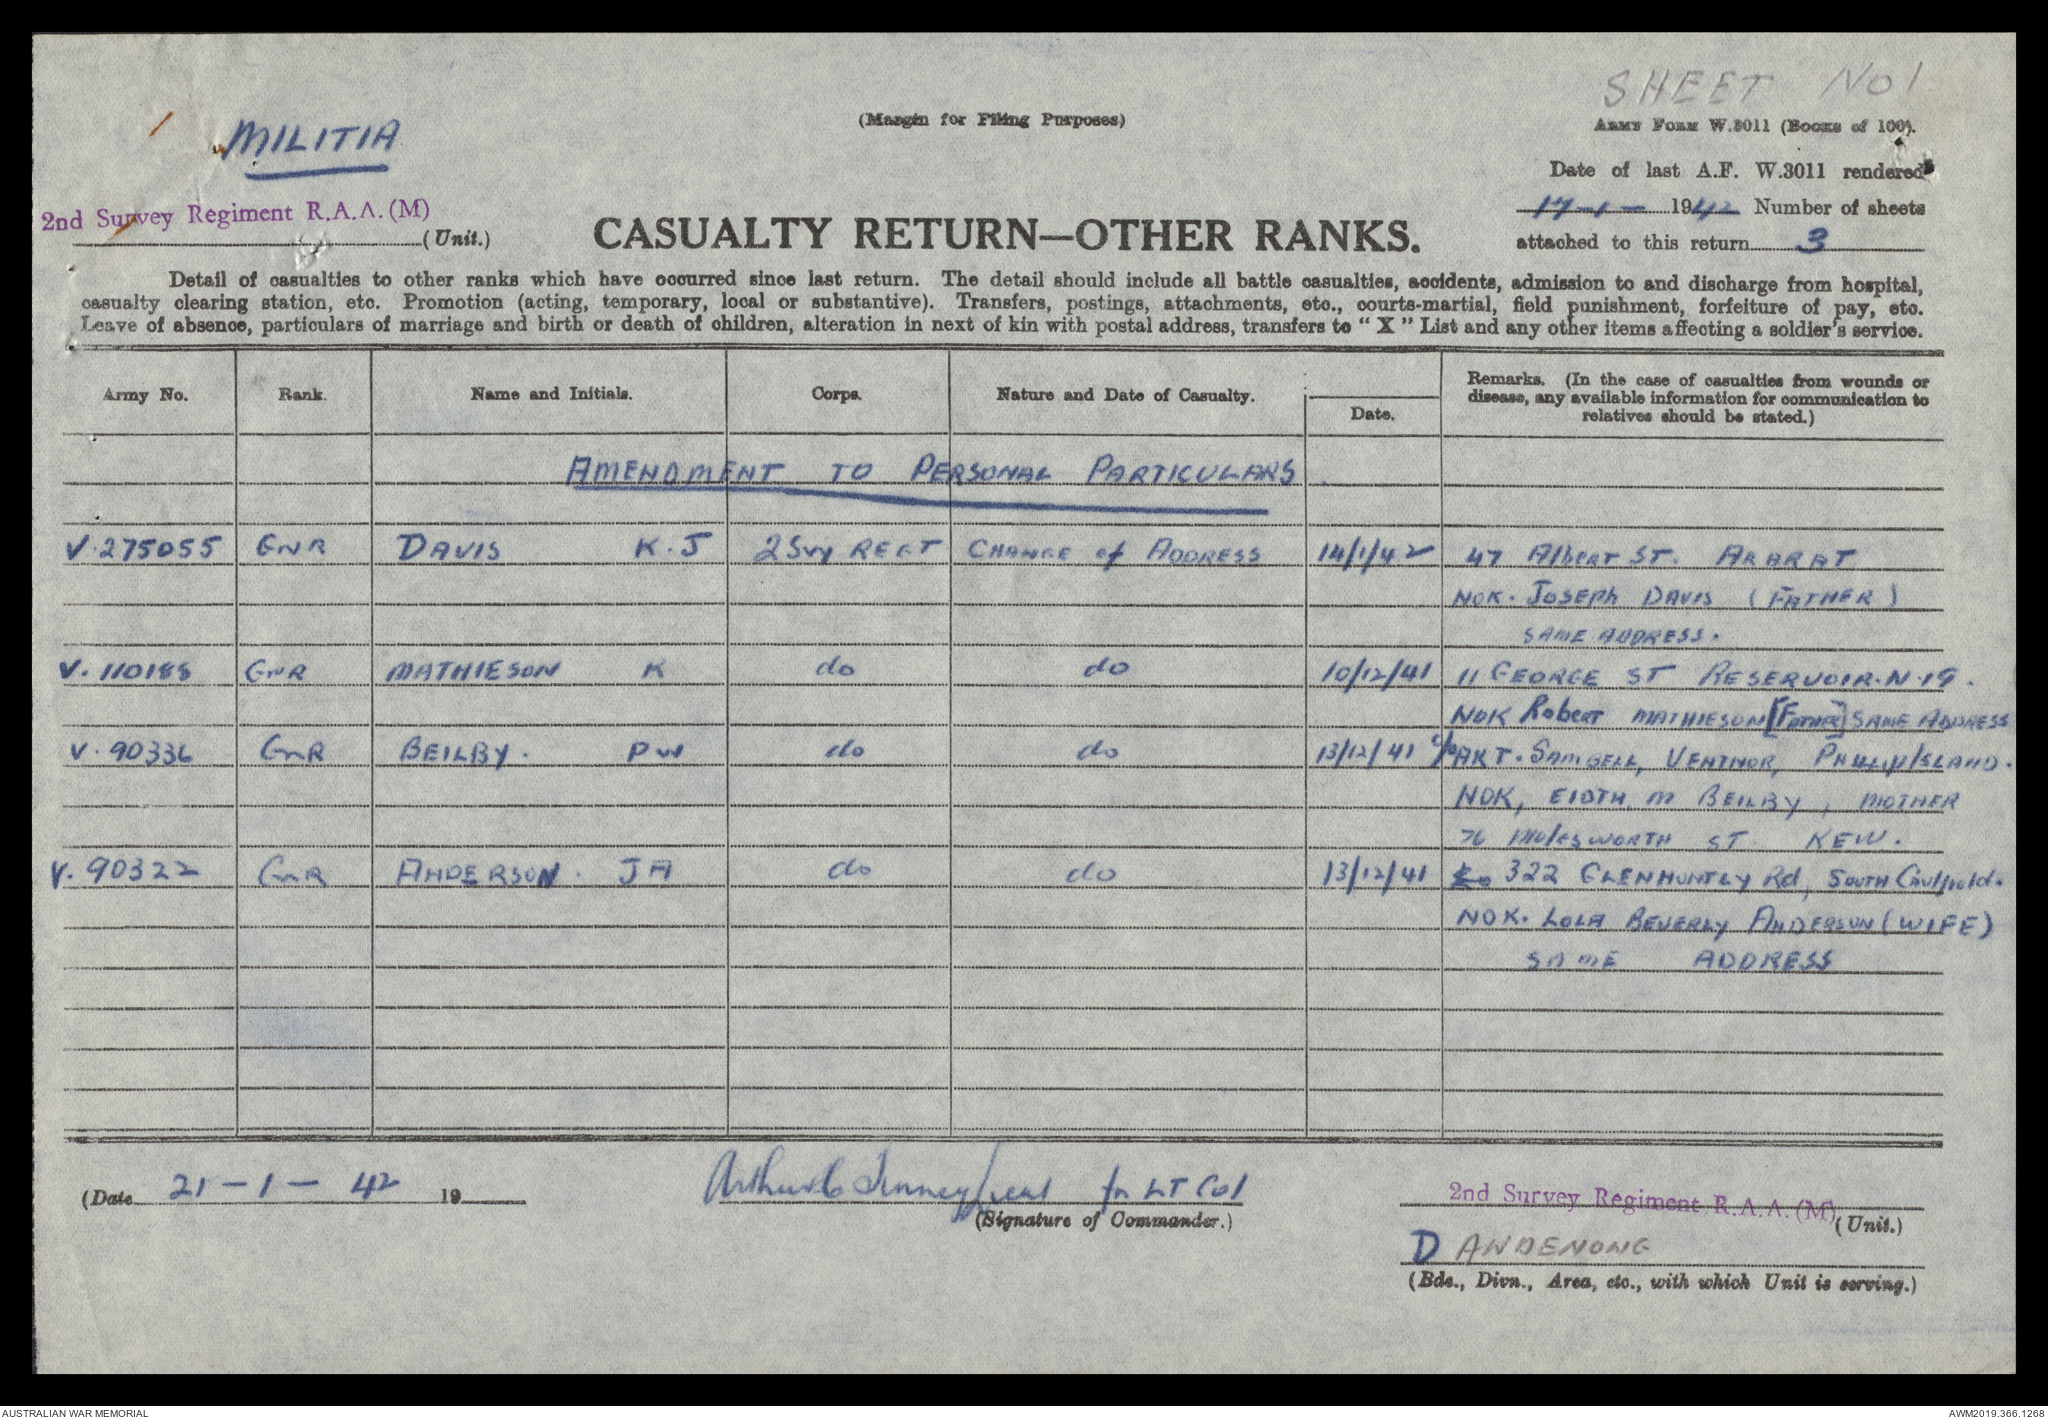 SHEET NO 1
MILITIA
(Margin for Filing Purposes)
Army Form W.3011 (Books of 100).
Date of last A.F. W.3011 rendered
17-1- 1942 Number of sheets
attached to this return 3
2nd Survey Regiment R.A.A. (M)
(Unit.)
CASUALTY RETURN—OTHER RANKS.
Detail of casualties to other ranks which have occurred since last return. The detail should include all battle casualties, accidents, admission to and discharge from hospital,
casualty clearing station, etc. Promotion (acting, temporary, local or substantive). Transfers, postings, attachments, etc., courts-martial, field punishment, forfeiture of pay, etc.
Leave of absence, particulars of marriage and birth or death of children, alteration in next of kin with postal address, transfers to "X" List and any other items affecting a soldier's service.
Army No. Rank. Name and Initials. Corps. Nature and Date of Casualty. Date. Remarks. (In the case of casualties from wounds or
disease, any available information for communication to
relatives should be stated.)
AMENDMENT TO PERSONAL PARTICULARS.
V.275055 GNR DAVIS K.J 2 Svy REGT CHANGE of ADDRESS 14/1/42 47 Albert ST. ARARAT
NOK. JOSEPH DAVIS (FATHER)
SAME ADDRESS.
V.110188 GNR MATHIESON K do do 10/12/41 11 GEORGE ST RESERVOIR.N.19.
NOK Robert MATHIESON [FATHER] SAME ADDRESS
V.90336 GNR BEILBY. PW do do 13/12/41 c/o SAMBELL, VENTNOR, PHILLIP ISLAND.
NOK, EIDTH M BEILBY, MOTHER
76 Molesworth ST. KEW.
V.90322 GNR ANDERSON. JA do do 13/12/41 322 GLENHUNTLY Rd, SOUTH Caulfield.
NOK. LOLA BEVERLY ANDERSON (WIFE)
SAME ADDRESS
(Date 21-1-42 19
Arthur for LT Col
(Signature of Commander.)
2nd Survey Regiment R.A.A. (M)
(Unit.)
DANDENONG
(Bde., Divn., Area, etc., with which Unit is serving.)
AUSTRALIAN WAR MEMORIAL
AWM2019.366.1268